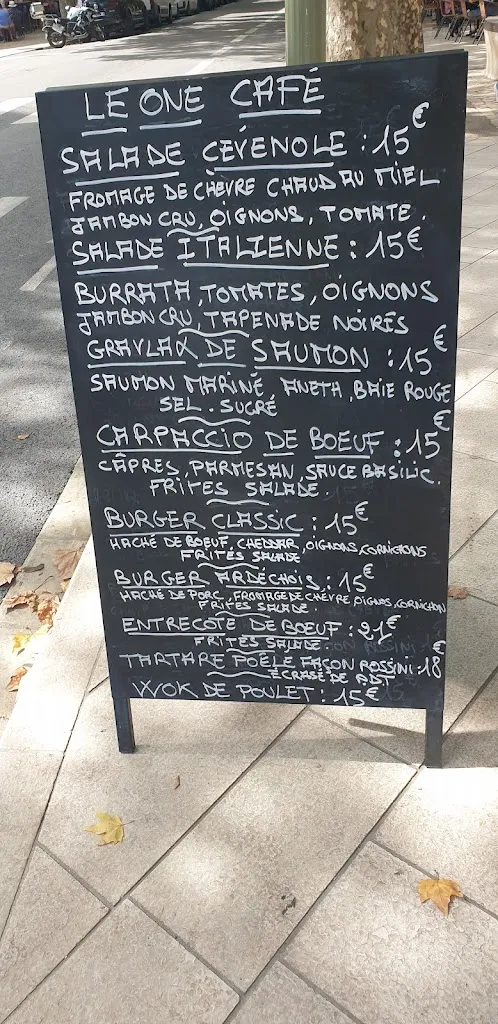 LE ONE CAFÉ
SALADE CÉVENOLE : 15€
FROMAGE DE CHÈVRE CHAUD AU MIEL
JAMBON CRU, OIGNONS, TOMATE.
SALADE ITALIENNE : 15€
BURRATA, TOMATES, OIGNONS
JAMBON CRU, TAPENADE NOIRES
GRAVLAX DE SAUMON : 15€
SAUMON MARINÉ ANETH, BAIE ROUGE
SEL. SUCRÉ
CARPACCIO DE BOEUF : 15€
CÂPRES, PARMESAN, SAUCE BASILIC.
FRITES SALADE.
BURGER CLASSIC : 15€
HACHÉ DE BOEUF, CHEDDAR, OIGNONS, CORNICHONS
FRITES SALADE
BURGER ARDÉCHOIS : 15€
HACHÉ DE PORC, FROMAGE DE CHÈVRE, OIGNONS, CORNICHON
FRITES SALADE.
ENTRECÔTE DE BOEUF : 21€
FRITES SALADE.
TARTARE POÊLÉ FAÇON ROSSINI : 18€
ÉCRASÉ DE PDT
WOK DE POULET : 15€